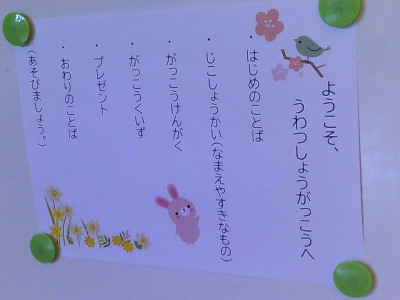 ようこそ、
うわつしょうがっこうへ
・はじめのことば
・じこしょうかい(なまえやすきなもの)
・がっこうけんがく
・がっこうくいず
・プレゼント
・おわりのことば
(あそびましょう。)